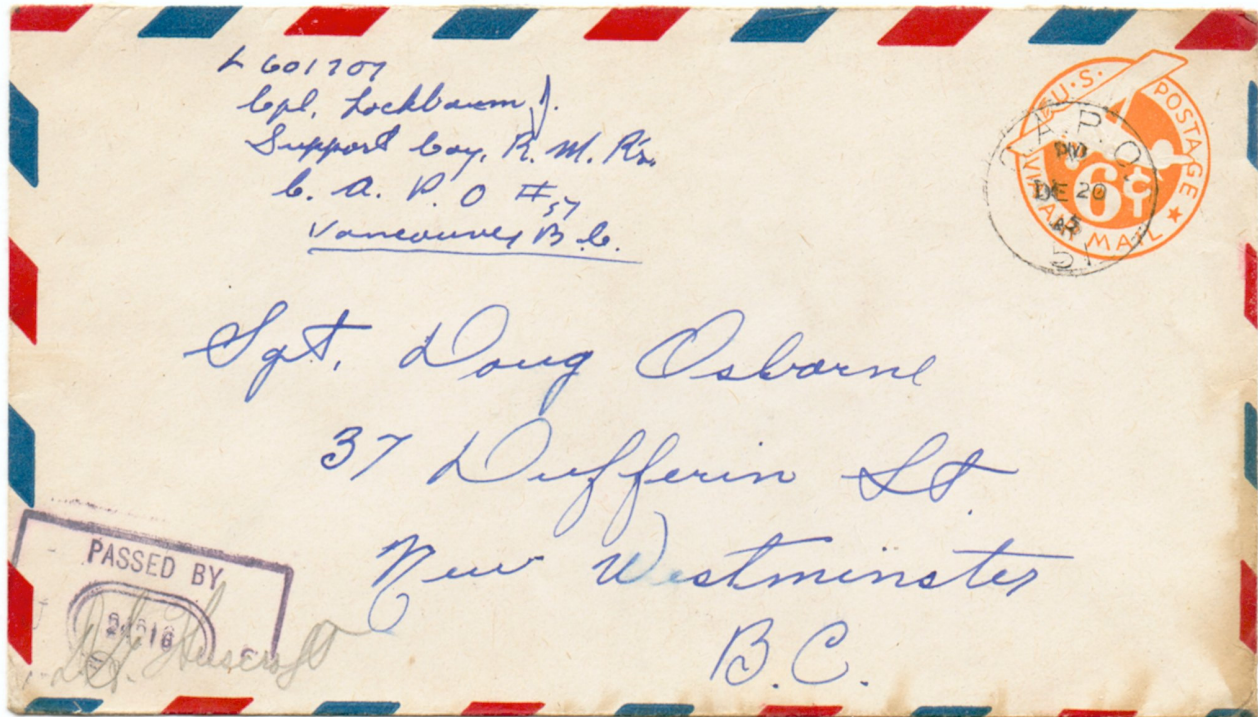 L 601707
Cpl. Lockbaum J.
Support Coy, R. M. R's.
C. A. P. O #57
Vancouver B.C.
U.S. POSTAGE
VIA AIR MAIL
6¢
C.A.P.O.
PM
DE 20
51
Sgt. Doug Osborne
37 Dufferin St.
New Westminster
B.C.
PASSED BY